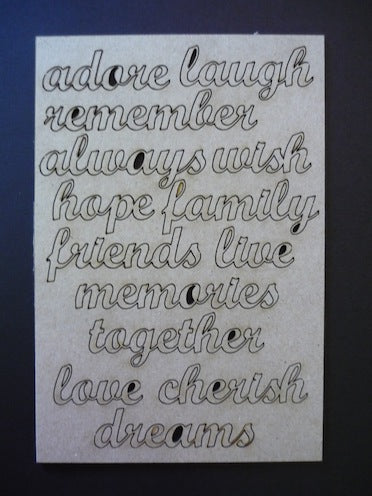 adore laugh
remember
always wish
hope family
friends live
memories
together
love cherish
dreams